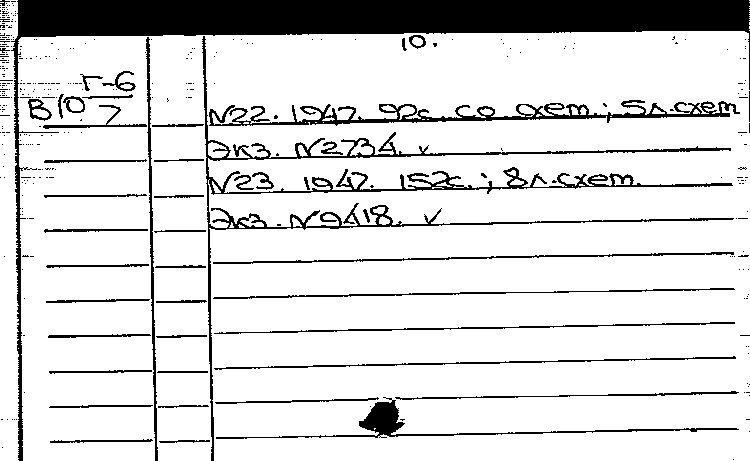 10.
Г-6
В10 7
№22. 1947. 92с. со схем.; 5л.схем
Экз. №2734. ✓
№23. 1947. 152с.; 8л.схем.
Экз. №9418. ✓